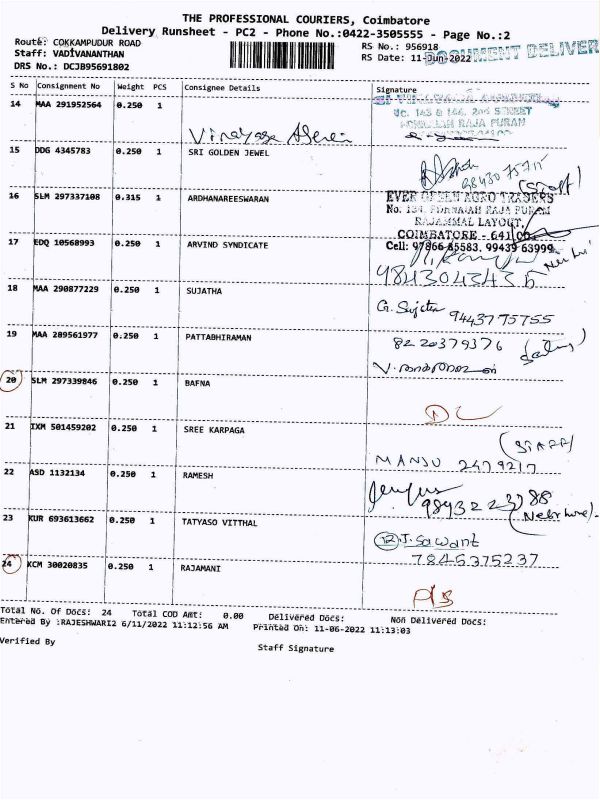 THE PROFESSIONAL COURIERS, Coimbatore
Delivery Runsheet - PC2 - Phone No.:0422-3505555 - Page No.:2
Route: COKKAMPUDUR ROAD
Staff: VADIVANANTHAN
DRS No.: DCJB95691802
RS No.: 956918
RS Date: 11-Jun-2022
DOCUMENT DELIVER
S No Consignment No Weight PCS Consignee Details Signature
14 MAA 291952564 0.250 1
Vinayaga Agencies
15 DDG 4345783 0.250 1 SRI GOLDEN JEWEL
98430 75715 (Staff)
16 SLM 297337108 0.315 1 ARDHANAREESWARAN
EVER GREEN AGRO TRADERS
No. 134, PONNAIAH RAJA PURAM
RAJAMMAL LAYOUT,
COIMBATORE - 641 001.
Cell: 97866 85583, 99439 63999
17 EDQ 10568993 0.250 1 ARVIND SYNDICATE
9843043435
18 MAA 290877229 0.250 1 SUJATHA
G. Sujatha 9443775755
19 MAA 289561977 0.250 1 PATTABHIRAMAN
8220379376
20 SLM 297339846 0.250 1 BAFNA
DL
21 IXM 501459202 0.250 1 SREE KARPAGA
(STAFF)
MANJU 2479217
22 ASD 1132134 0.250 1 RAMESH
9893223788
23 KUR 693613662 0.250 1 TATYASO VITTHAL
12 J. Sawant
7845375237
24 KCM 30020835 0.250 1 RAJAMANI
Total No. Of Docs: 24 Total COD Amt: 0.00 Delivered Docs: Non Delivered Docs:
Entered By :RAJESHWARI2 6/11/2022 11:12:56 AM Printed On: 11-06-2022 11:13:03
Verified By
Staff Signature